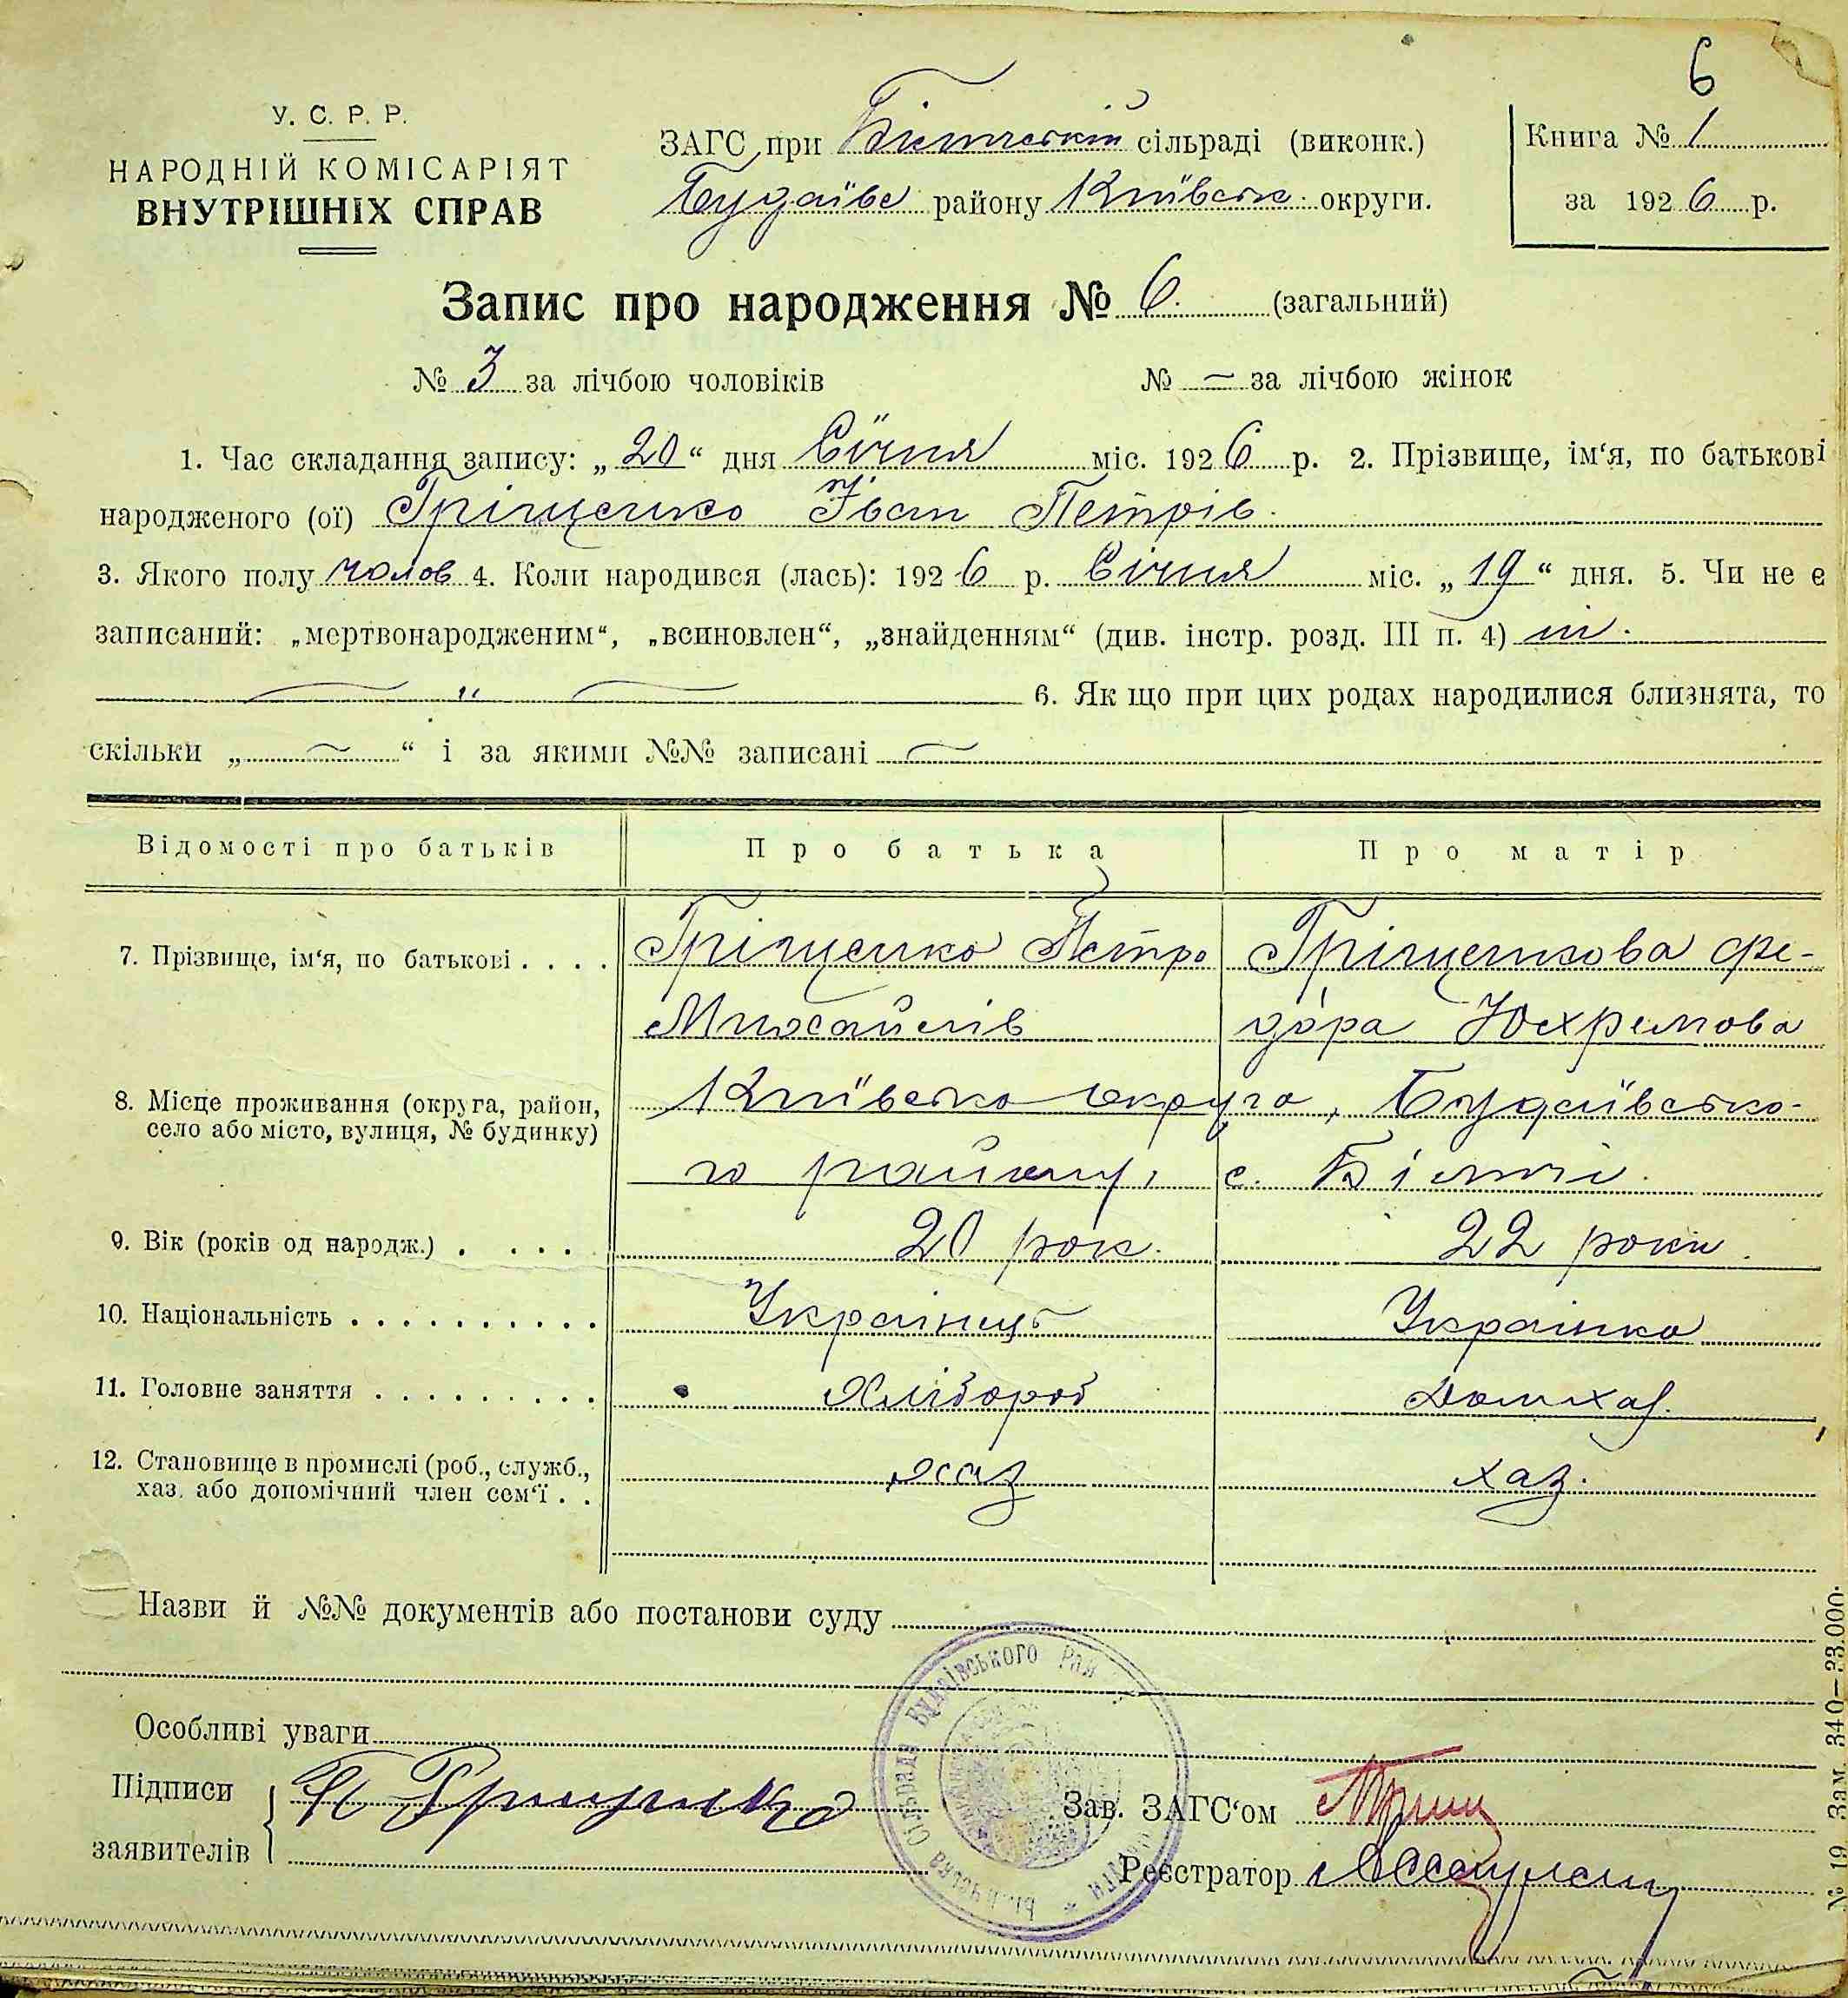 6
У. С. Р. Р.
НАРОДНІЙ КОМІСАРІЯТ
ВНУТРІШНІХ СПРАВ
ЗАГС при Білицькій сільраді (виконк.)
Будаївс району Київськ округи.
Книга № 1
за 1926 р.
Запис про народження № 6. (загальний)
№ 3 за лічбою чоловіків № — за лічбою жінок
1. Час складання запису: „20“ дня Січня міс. 1926 р. 2. Прізвище, ім‘я, по батькові
народженого (ої) Гріщенко Іван Петрів.
3. Якого полу чолов 4. Коли народився (лась): 1926 р. Січня міс. „19“ дня. 5. Чи не є
записаний: „мертвонародженим“, „всиновлен“, „знайденням“ (див. інстр. розд. III п. 4) ні.
— „ — 6. Як що при цих родах народилися близнята, то
скільки „—“ і за якими №№ записані —
Відомості про батьків Про батька Про матір
7. Прізвище, ім‘я, по батькові . . . . Гріщенко Петро Гріщенкова Фе-
Михайлів дора Юхремова
8. Місце проживання (округа, район,
село або місто, вулиця, № будинку)
Київська округа, Будаївсько-
го району, с. Біличі.
9. Вік (років од народж.) . . . . . 20 рок. 22 роки.
10. Національність . . . . . . . . . . Українць Українка
11. Головне заняття . . . . . . . . . Хлібороб Домхаз.
12. Становище в промислі (роб., служб.,
хаз. або допомічний член сем‘ї . . хаз хаз.
Назви й №№ документів або постанови суду
Особливі уваги
Підписи
заявителів
П Грищенко
Зав. ЗАГС‘ом
Реєстратор
Білицька Сільрада Будаївського Рай
№ 19 Зам. 340—33.000.